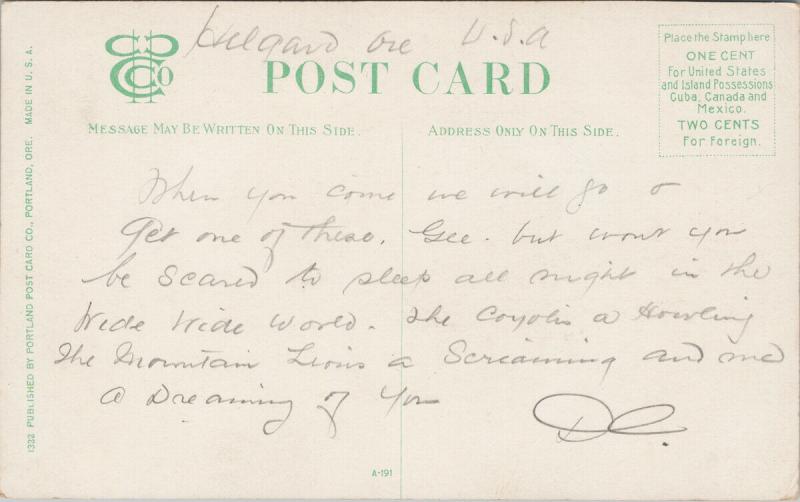 Hilgard Ore U.S.A
CCC Co
POST CARD
Place the Stamp here
ONE CENT
For United States
and Island Possessions
Cuba, Canada and
Mexico.
TWO CENTS
For Foreign.
MESSAGE MAY BE WRITTEN ON THIS SIDE.
ADDRESS ONLY ON THIS SIDE.
When you come we will go &
Get one of these. Gee. but wont you
be Scared to sleep all night in the
Wide Wide World. The Coyotis a Howling
The Mountain Lions a Screaming and me
a Dreaming of You
DC.
A-191
1332 PUBLISHED BY PORTLAND POST CARD CO., PORTLAND, ORE. MADE IN U.S.A.